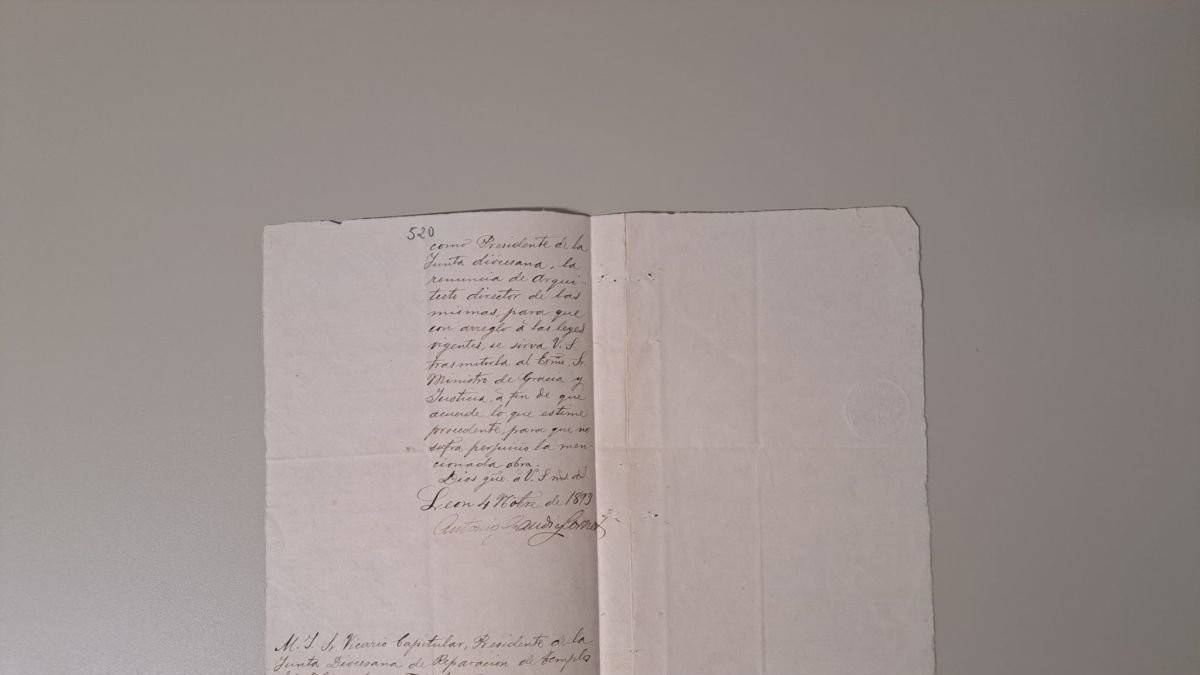 520
como Presidente de la
Junta diocesana, la
renuncia de Arqui-
tecto director de las
mismas, para que
con arreglo á las leyes
vigentes, se sirva V. S.
trasmitirla al Exmo. Sr.
Ministro de Gracia y
Justicia á fin de que
acuerde lo que estime
procedente, para que no
sufra perjuicio la men-
cionada obra.
Dios gue. á V. S. ms. as.
Leon 4 Nobre de 1893
Antonio Gaudi y Cornet
M. I. Sr. Vicario Capitular, Presidente de la
Junta Diocesana de Reparacion de templos